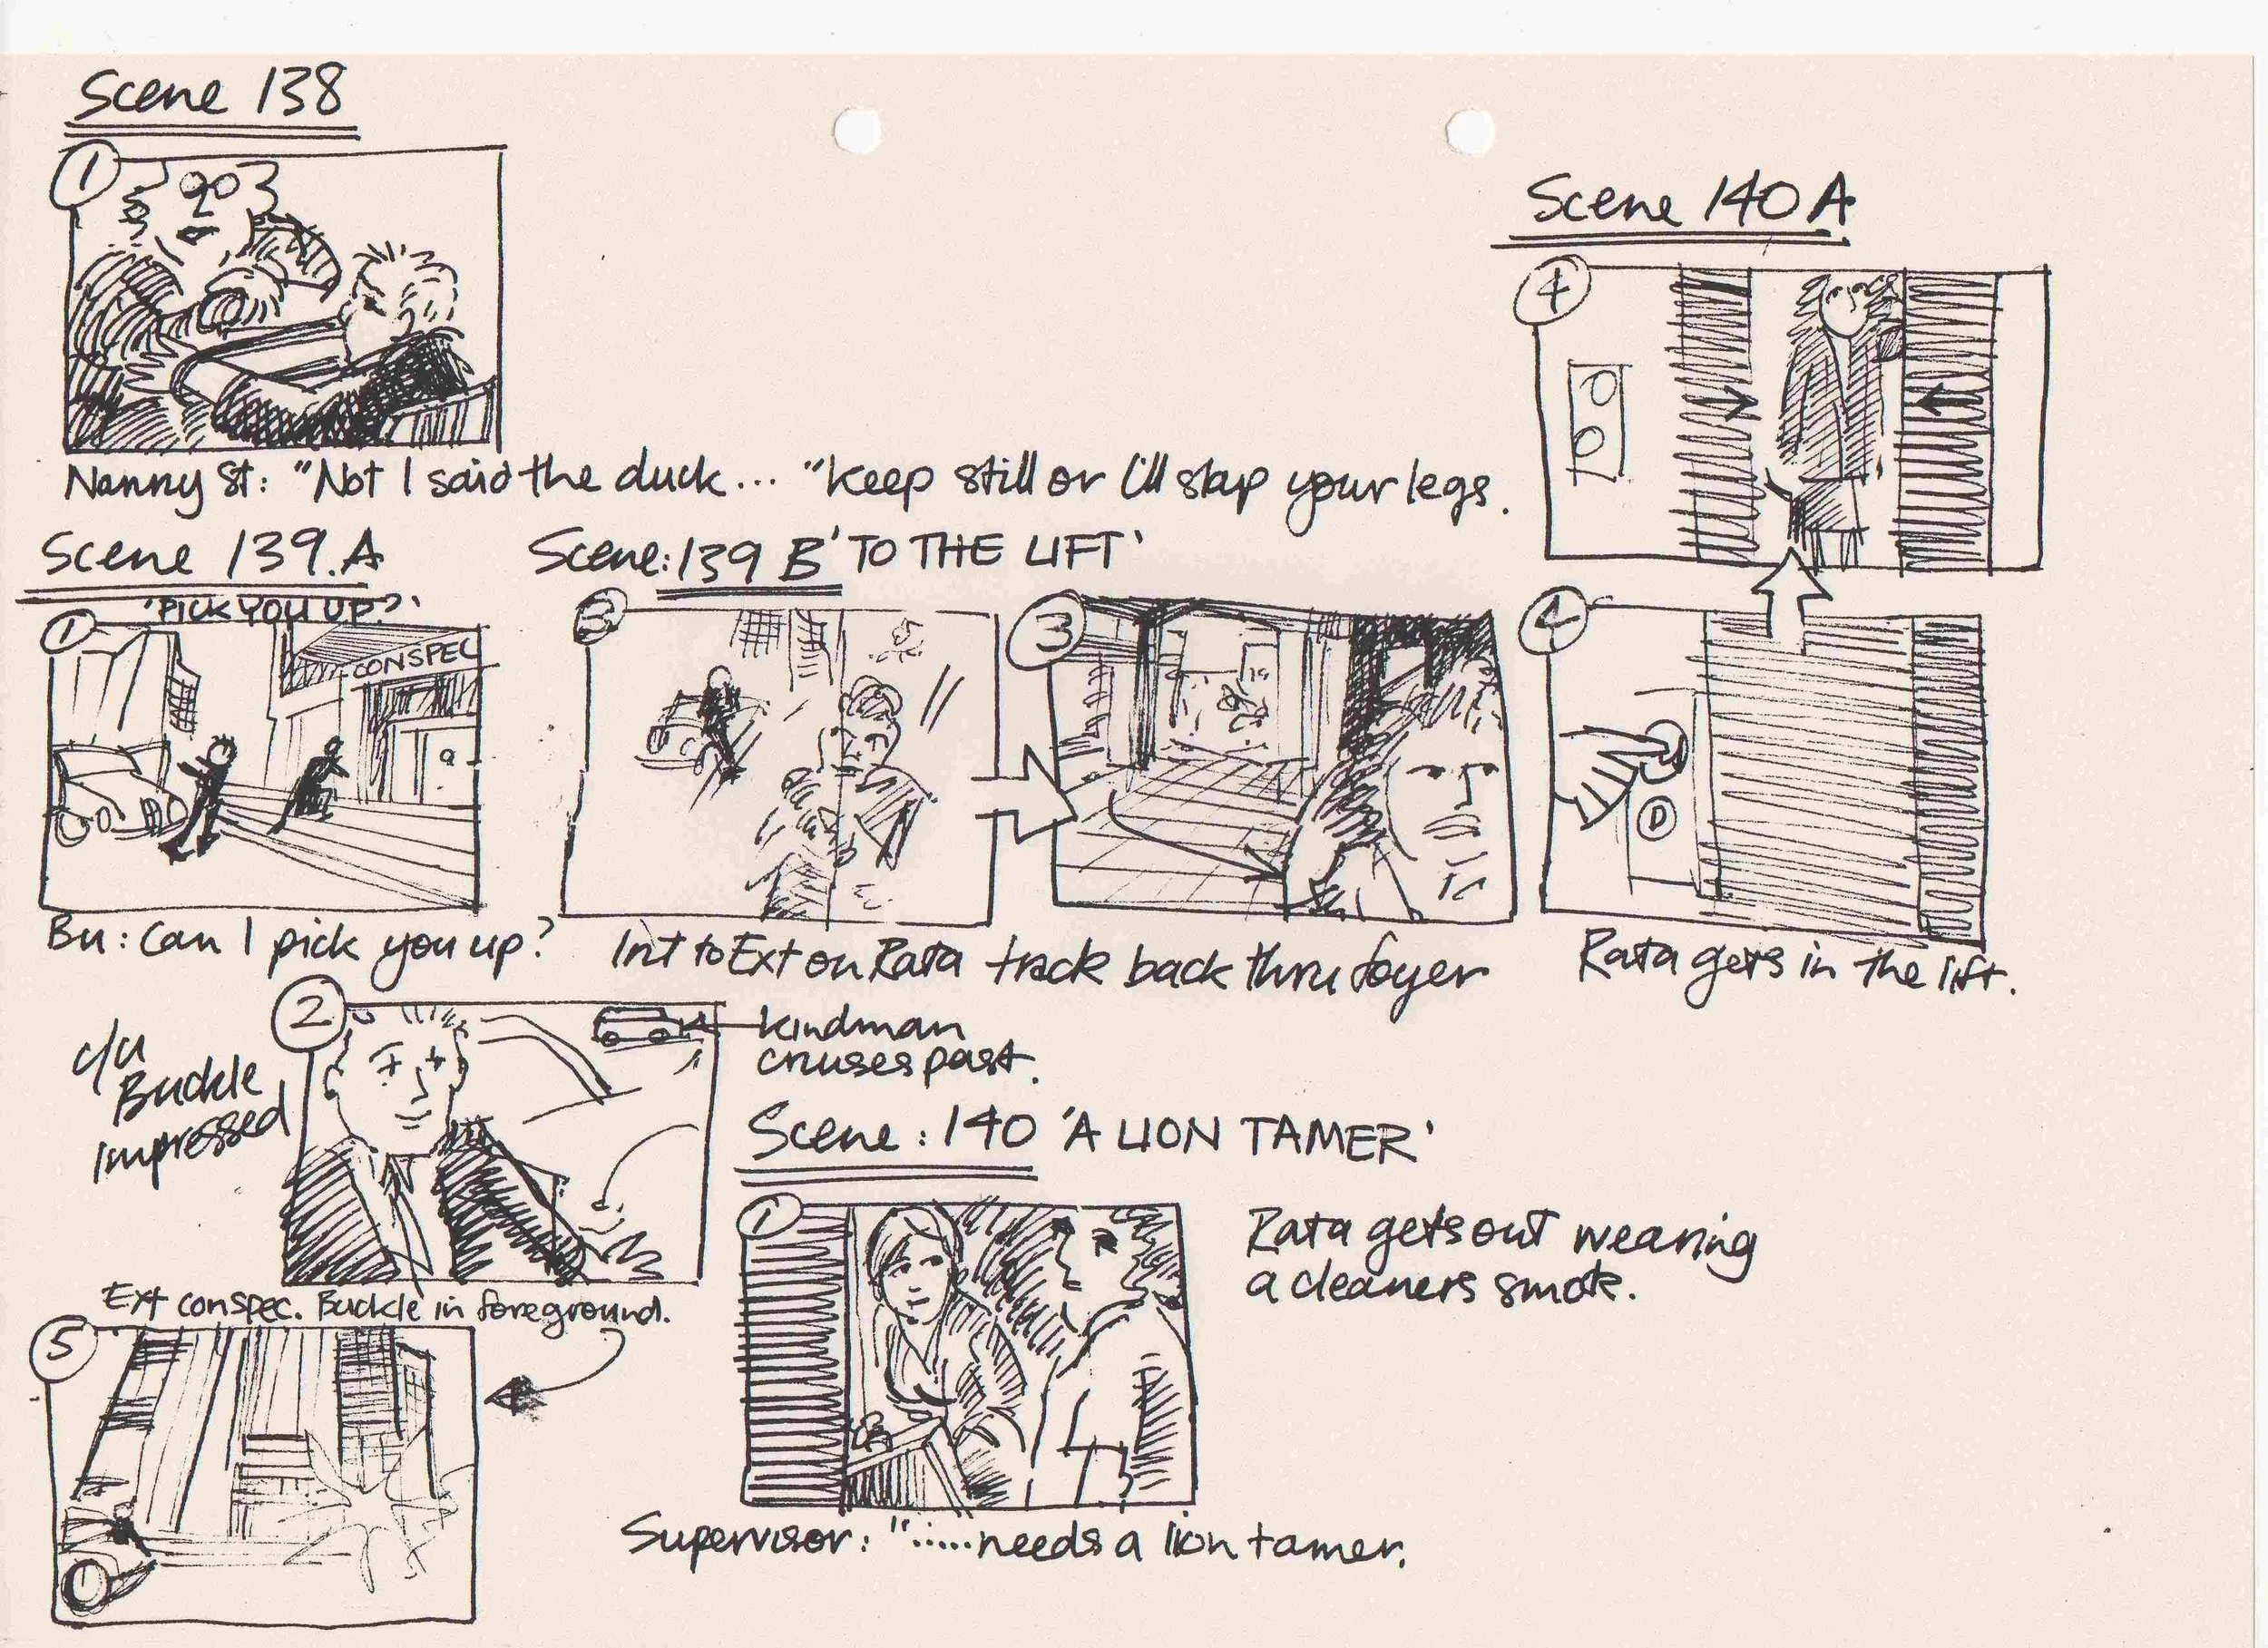 Scene 138
1
Nanny St: "Not I said the duck... "keep still or I'll slap your legs.
Scene 139.A
'PICK YOU UP?'
1
CONSPEC
Bu: Can I pick you up?
Scene: 139 B 'TO THE LIFT'
3
3
Int to Ext on Rata track back thru foyer
Scene 140 A
4
4
D
Rata gets in the lift.
2
c/u
Buckle
impressed
kindman
cruses past.
Ext conspec. Buckle in foreground.
5
Scene: 140 'A LION TAMER'
1
Rata gets out wearing
a cleaners smok.
Supervisor: ".....needs a lion tamer.